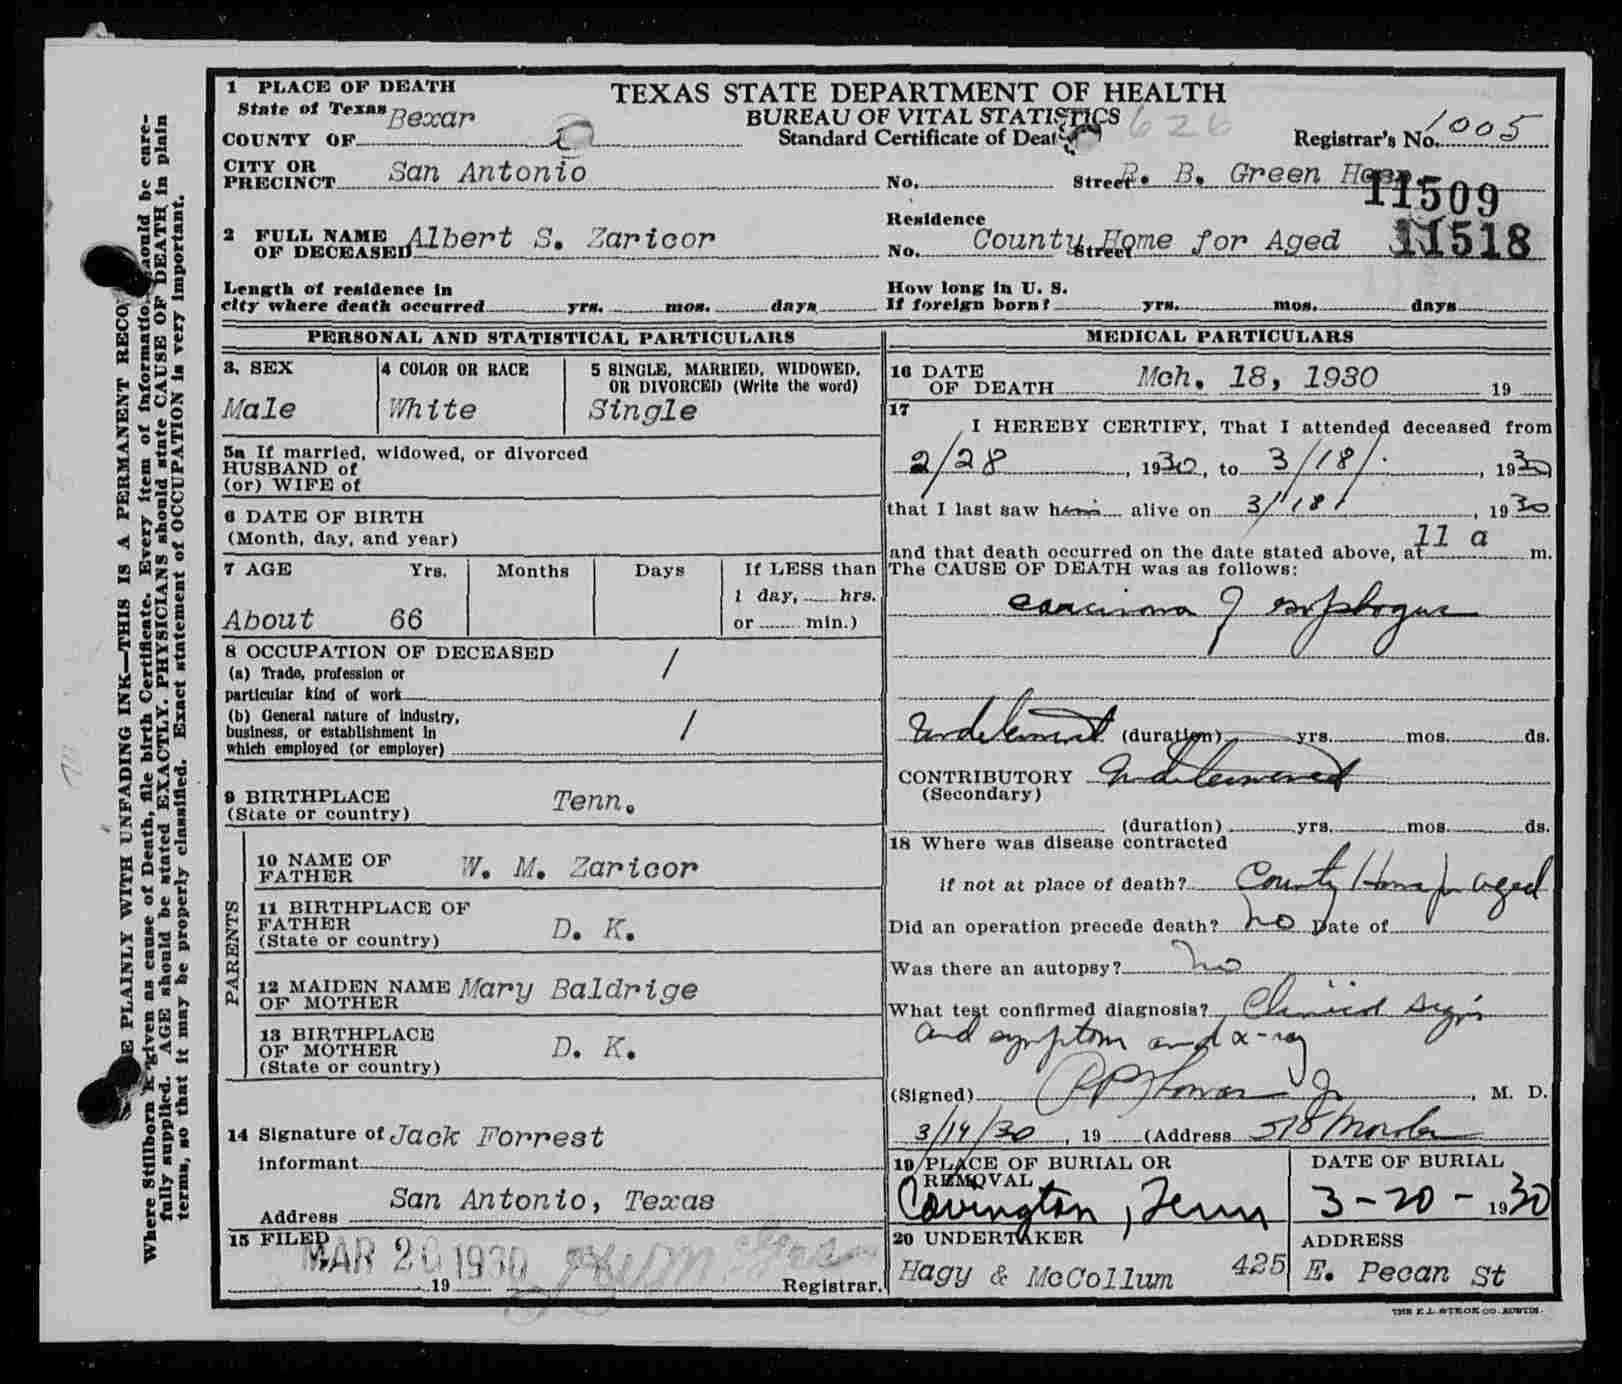 TEXAS STATE DEPARTMENT OF HEALTH
BUREAU OF VITAL STATISTICS
Standard Certificate of Death
626
Registrar's No. 1005
1 PLACE OF DEATH
State of Texas
COUNTY OF Bexar
CITY OR PRECINCT San Antonio
No. Street R. B. Green Hosp.
11509
11518
2 FULL NAME OF DECEASED Albert S. Zaricor
Residence No. Street County Home for Aged
Length of residence in city where death occurred yrs. mos. days
How long in U. S. If foreign born? yrs. mos. days
PERSONAL AND STATISTICAL PARTICULARS
3. SEX Male
4 COLOR OR RACE White
5 SINGLE, MARRIED, WIDOWED, OR DIVORCED (Write the word) Single
5a If married, widowed, or divorced
HUSBAND of
(or) WIFE of
6 DATE OF BIRTH
(Month, day, and year)
7 AGE Yrs. Months Days If LESS than
1 day, hrs.
or min.)
About 66
8 OCCUPATION OF DECEASED /
(a) Trade, profession or
particular kind of work
(b) General nature of industry, /
business, or establishment in
which employed (or employer)
9 BIRTHPLACE
(State or country) Tenn.
PARENTS
10 NAME OF FATHER W. M. Zaricor
11 BIRTHPLACE OF FATHER
(State or country) D. K.
12 MAIDEN NAME OF MOTHER Mary Baldrige
13 BIRTHPLACE OF MOTHER
(State or country) D. K.
14 Signature of informant Jack Forrest
Address San Antonio, Texas
15 FILED
MAR 20 1930
19 Registrar.
MEDICAL PARTICULARS
16 DATE OF DEATH Mch. 18, 1930 19
17
I HEREBY CERTIFY, That I attended deceased from
2/28, 1930, to 3/18/, 1930
that I last saw him alive on 3/18/, 1930
and that death occurred on the date stated above, at 11 a m.
The CAUSE OF DEATH was as follows:
carcinoma of esophogus
(duration) yrs. mos. ds.
CONTRIBUTORY Undetermined
(Secondary)
(duration) yrs. mos. ds.
18 Where was disease contracted
if not at place of death? County Home for aged
Did an operation precede death? no Date of
Was there an autopsy? no
What test confirmed diagnosis? Clinical signs
and symptoms and x-ray
(Signed) Jr, M. D.
3/19/30, 19 (Address 518 Moore Bldg
19 PLACE OF BURIAL OR REMOVAL
Covington, Tenn
DATE OF BURIAL
3-20-1930
20 UNDERTAKER
Hagy & McCollum
ADDRESS
425 E. Pecan St
THE E.L. STECK CO. AUSTIN.
E PLAINLY WITH UNFADING INK—THIS IS A PERMANENT RECO
Where Stillborn is given as cause of Death, file birth Certificate. Every item of information should be care-
fully supplied. AGE should be stated EXACTLY. PHYSICIANS should state CAUSE OF DEATH in plain
terms, so that it may be properly classified. Exact statement of OCCUPATION is very important.